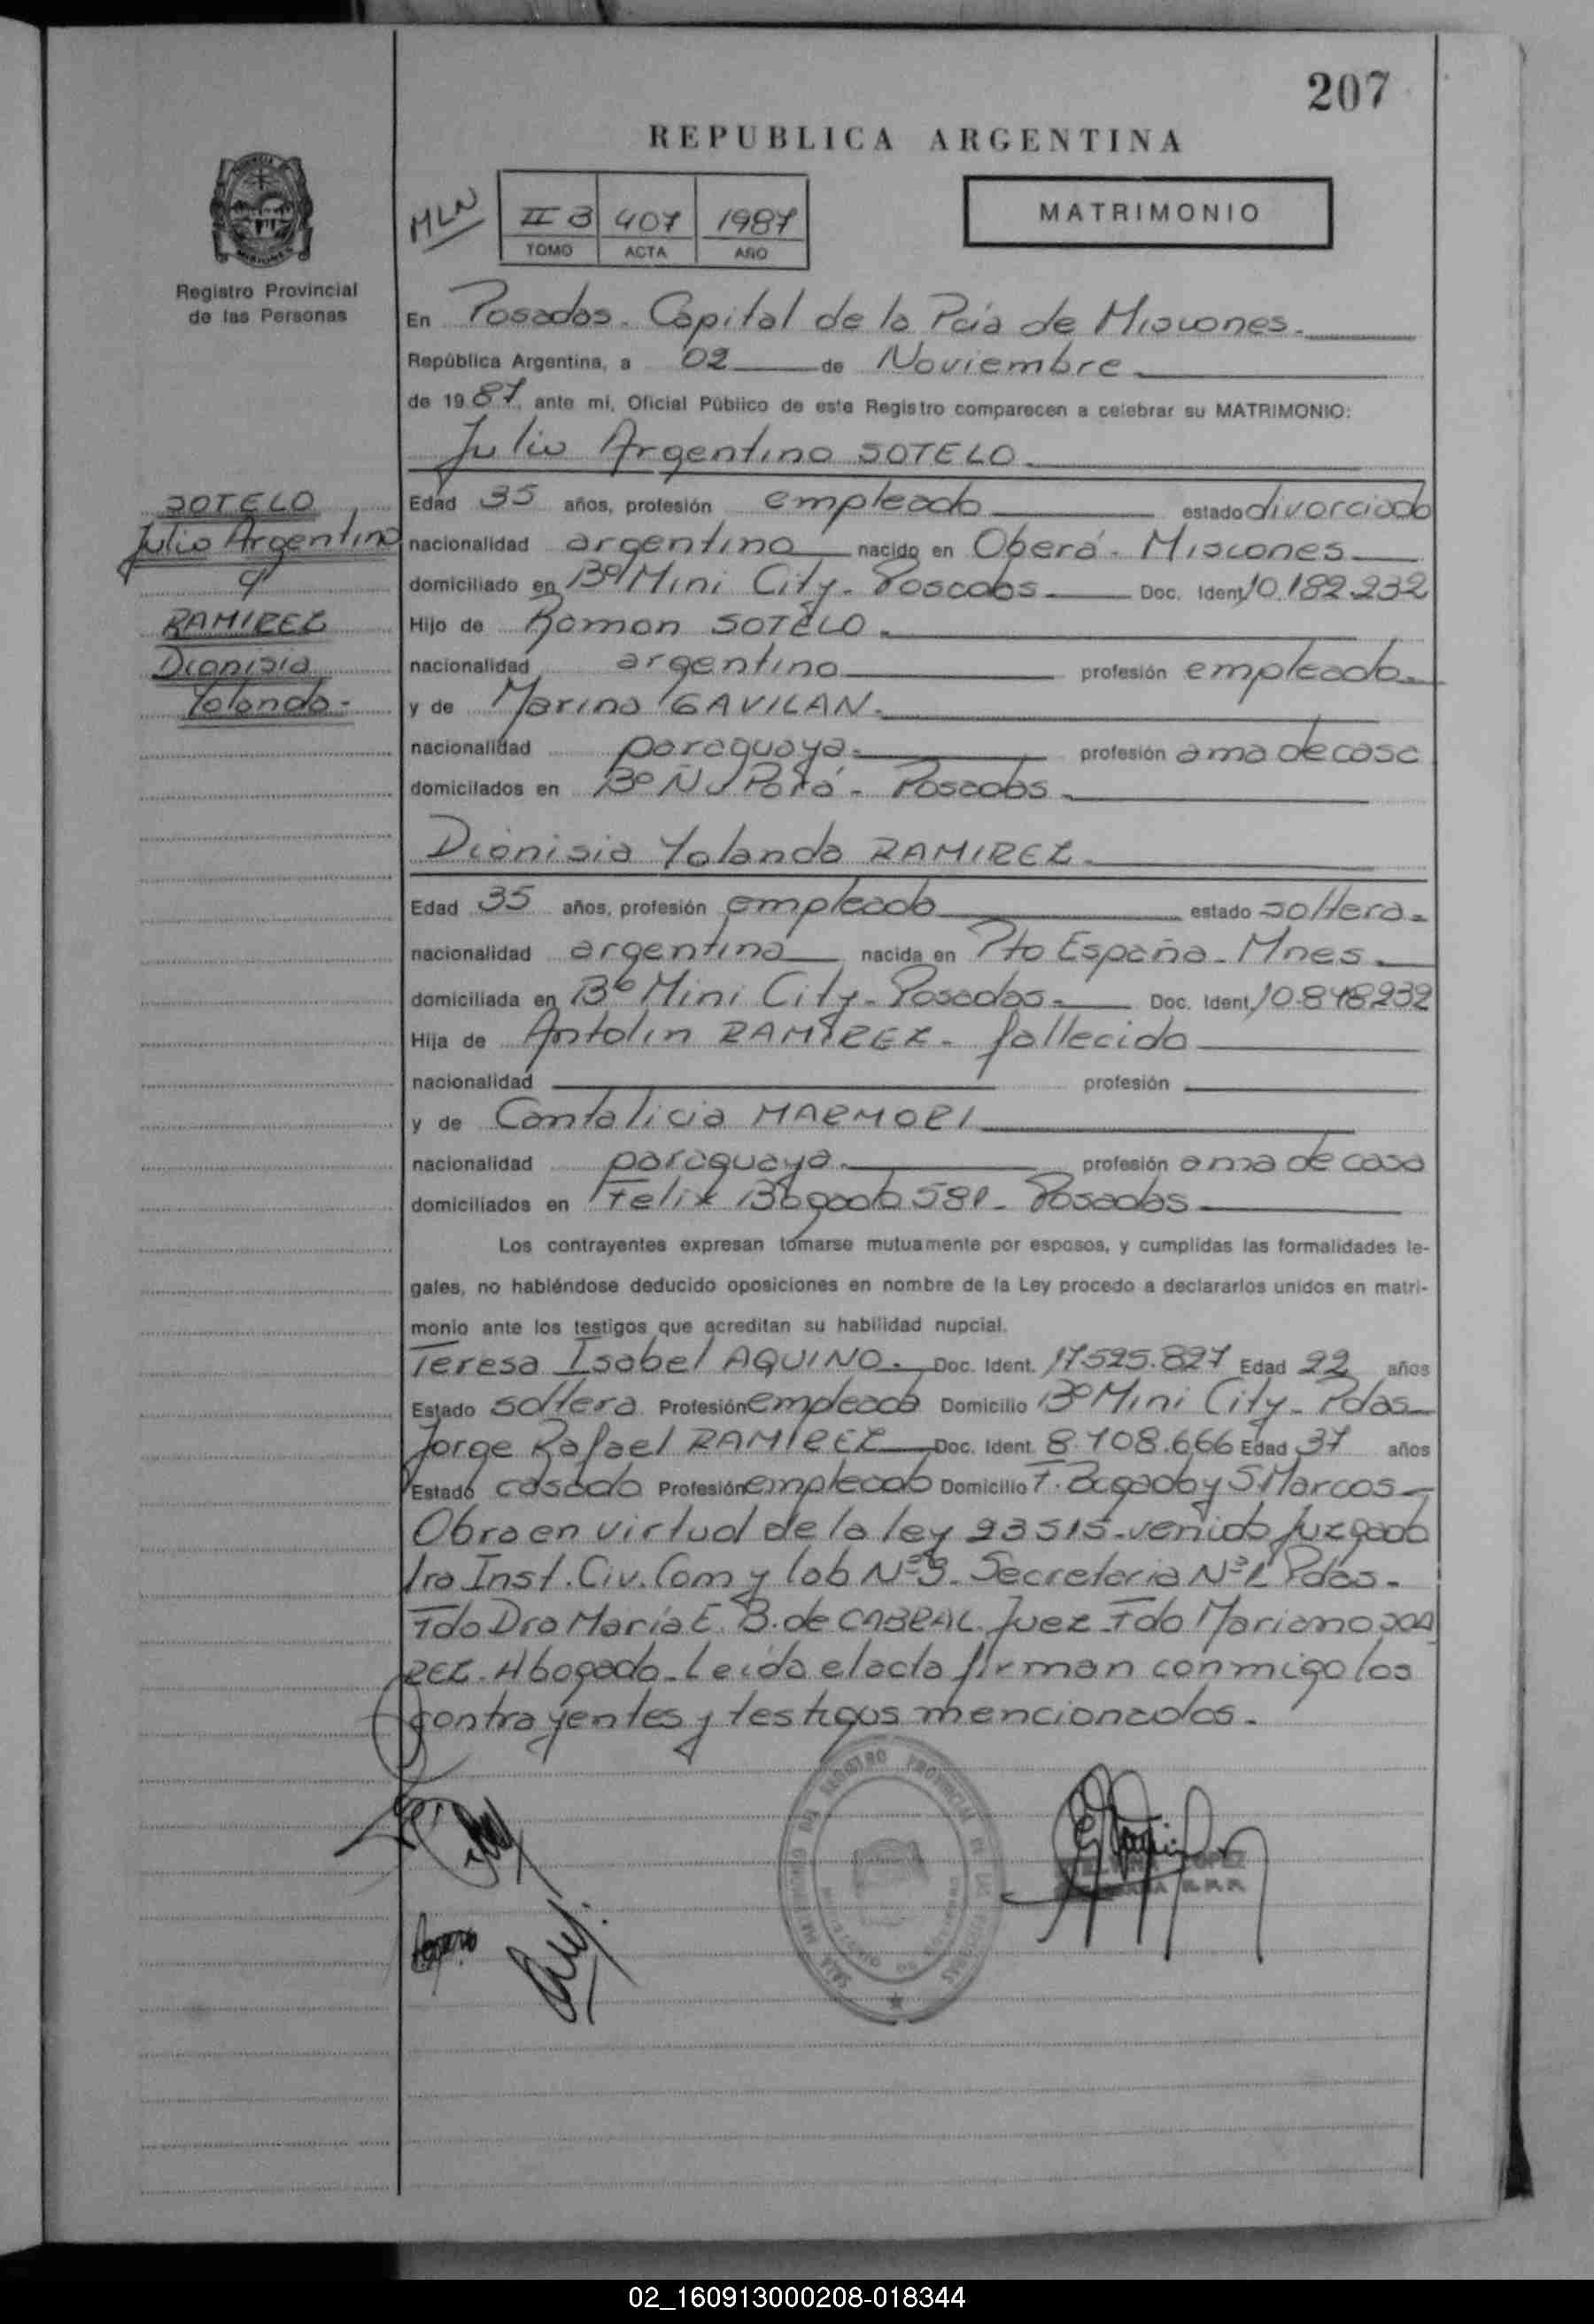 207
REPUBLICA ARGENTINA
MLN
II B 407 1987
TOMO ACTA AÑO
MATRIMONIO
Registro Provincial
de las Personas
En Posadas. Capital de la Pcia de Misiones.
República Argentina, a 02 de Noviembre
de 1987, ante mí, Oficial Público de este Registro comparecen a celebrar su MATRIMONIO:
Julio Argentino SOTELO
SOTELO
Julio Argentino
y
RAMIREZ
Dionisia
Yolanda-
Edad 35 años, profesión empleado estado divorciado
nacionalidad argentino nacido en Oberá. Misiones
domiciliado en Bº Mini City. Posadas. Doc. Ident. 10.182.232
Hijo de Ramon SOTELO.
nacionalidad argentino profesión empleado.
y de Marina GAVILAN.
nacionalidad paraguaya. profesión ama de casa
domicilados en Bº Ñu Porá. Posadas
Dionisia Yolanda RAMIREZ.
Edad 35 años, profesión empleada estado soltera.
nacionalidad argentina nacida en Pto España. Mnes.
domiciliada en Bº Mini City. Posadas. Doc. Ident. 10.848232
Hija de Antolin RAMIREZ. fallecido
nacionalidad profesión
y de Cantalicia MARMORI
nacionalidad paraguaya. profesión ama de casa
domiciliados en Felix Bogado 581. Posadas
Los contrayentes expresan tomarse mutuamente por esposos, y cumplidas las formalidades le-
gales, no habiéndose deducido oposiciones en nombre de la Ley procedo a declararlos unidos en matri-
monio ante los testigos que acreditan su habilidad nupcial.
Teresa Isabel AQUINO. Doc. Ident. 17525.827 Edad 22 años
Estado soltera Profesión empleada Domicilio Bº Mini City. Pdas
Jorge Rafael RAMIREZ Doc. Ident. 8.108.666 Edad 37 años
Estado casado Profesión empleado Domicilio F. Bogado y S. Marcos
Obra en virtud de la ley 23515. venido Juzgado
1ra Inst. Civ. Com y lab Nº 3. Secretaria Nº 1 Pdas.
Fdo Dra María E. B. de CABRAL. Juez. Fdo Mariano JUA
REZ. Abogado. Leida el acta firman conmigo los
contrayentes y testigos mencionados.
REGISTRO PROVINCIAL DE LAS PERSONAS
LOPEZ
R. P. P.
02_160913000208-018344